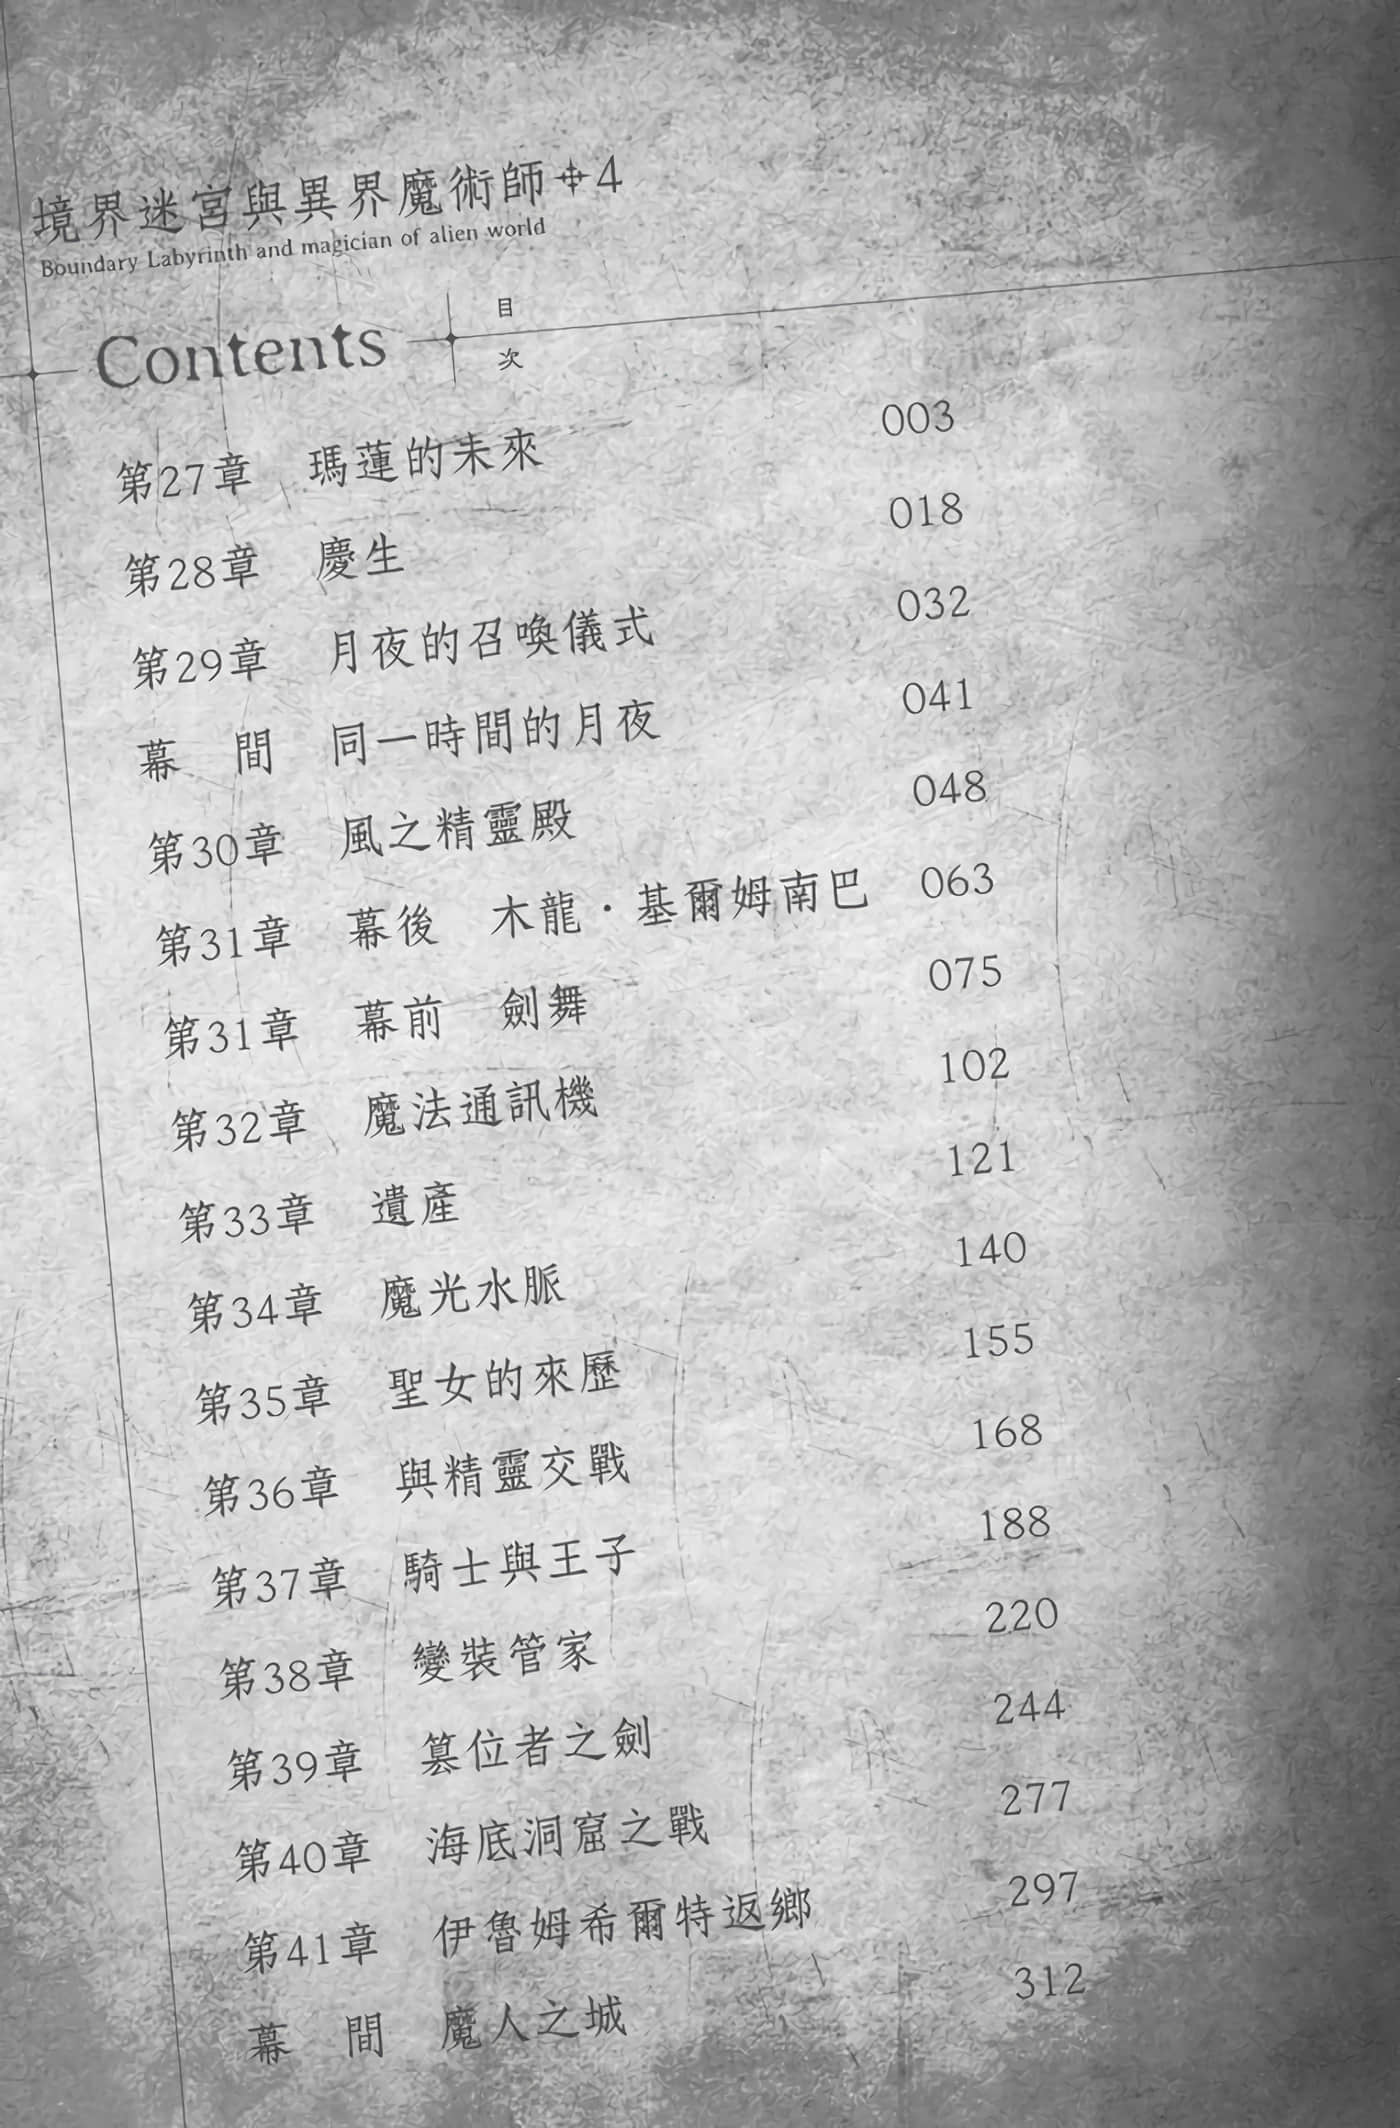 境界迷宮與異界魔術師 4
Boundary Labyrinth and magician of alien world
Contents 目次
第27章 瑪蓮的未來 003
第28章 慶生 018
第29章 月夜的召喚儀式 032
幕 間 同一時間的月夜 041
第30章 風之精靈殿 048
第31章 幕後 木龍・基爾姆南巴 063
第31章 幕前 劍舞 075
第32章 魔法通訊機 102
第33章 遺產 121
第34章 魔光水脈 140
第35章 聖女的來歷 155
第36章 與精靈交戰 168
第37章 騎士與王子 188
第38章 變裝管家 220
第39章 篡位者之劍 244
第40章 海底洞窟之戰 277
第41章 伊魯姆希爾特返鄉 297
幕 間 魔人之城 312